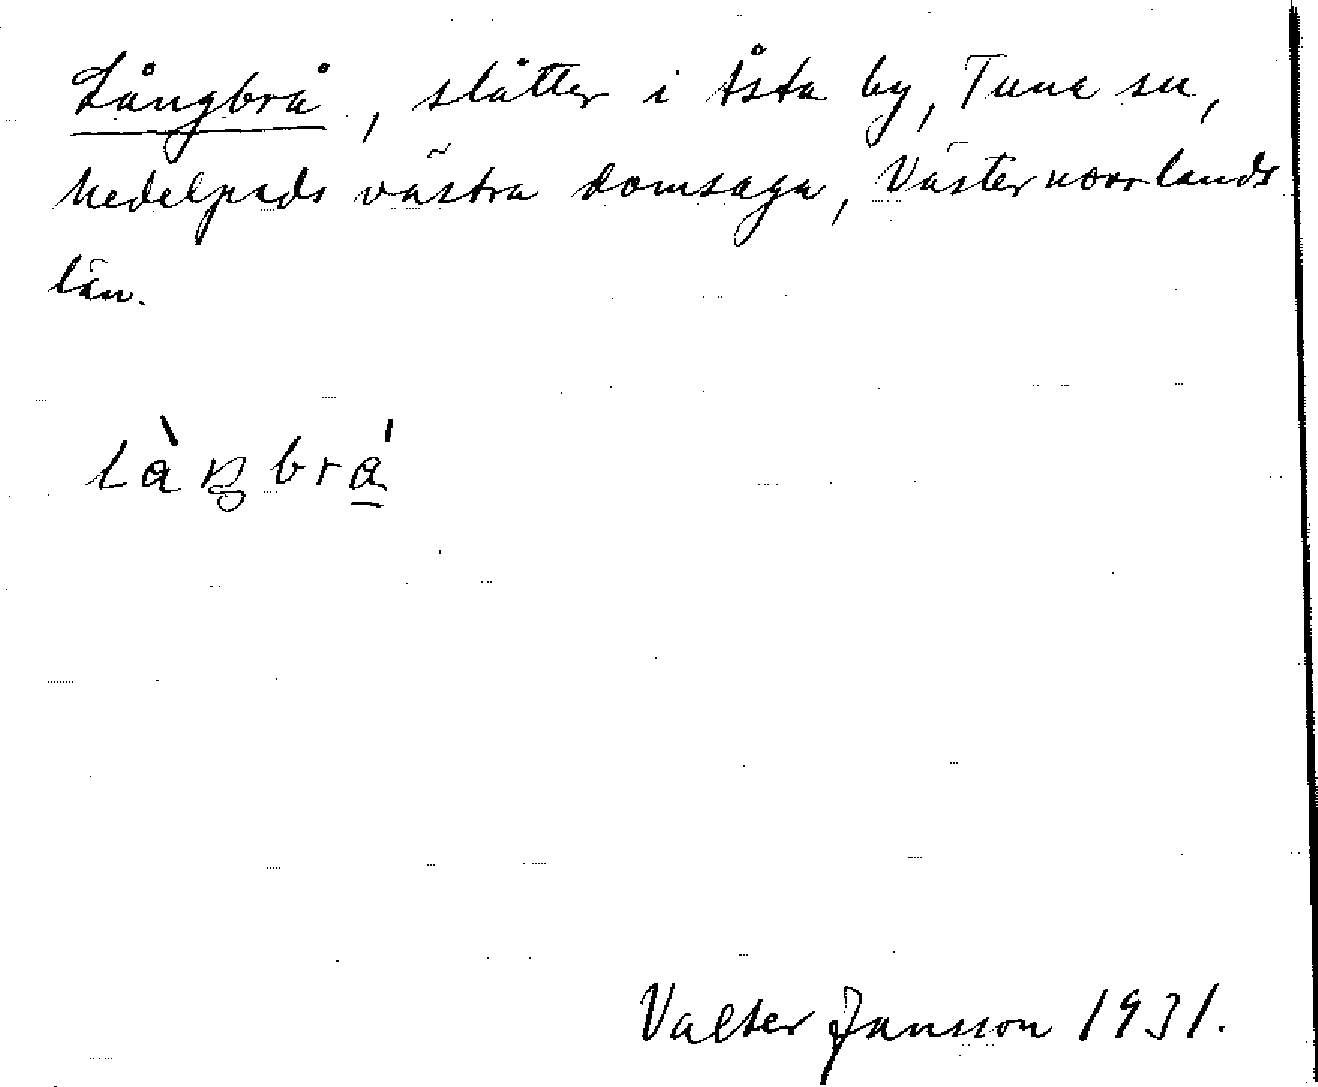 Långbrå, slåtter i Åsta by, Tuna sn,
Medelpads västra domsaga, Västernorrlands
län.
làŋbrá̱
Valter Jansson 1931.